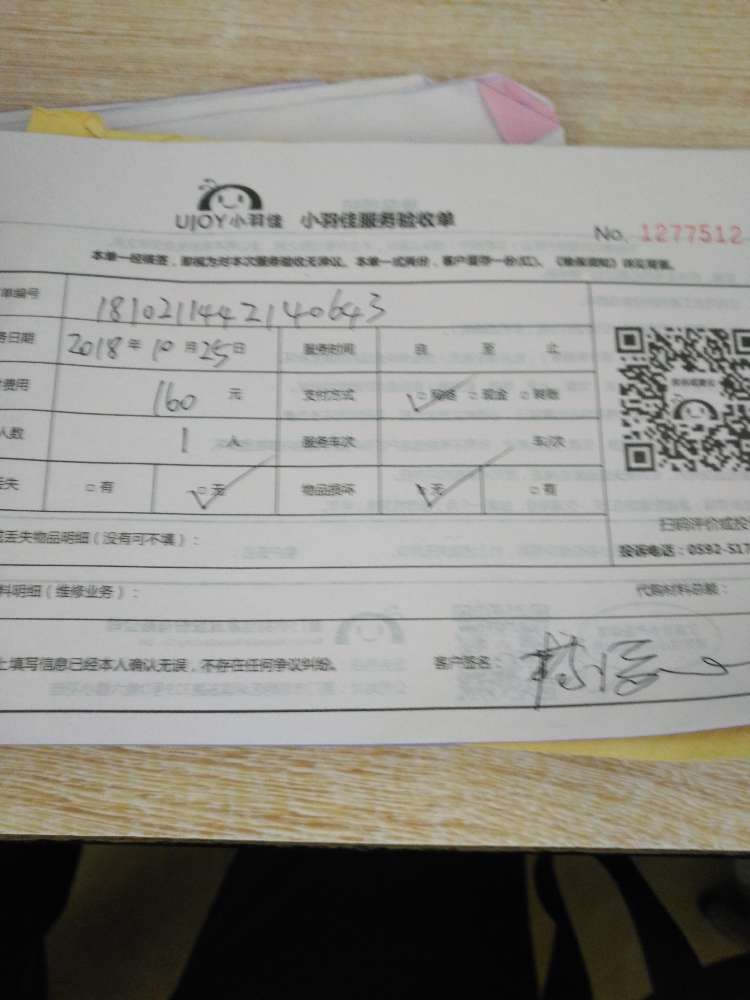 UJOY小羽佳 小羽佳服务验收单
No. 1277512
本单一经签, 即视为对本次服务验收无异议。本单一式两份, 客户留存一份(红)。
单编号 1810211442140643
务日期 2018年10月25日 服务时间 自 至 止
费用 160 元 支付方式 □ □现金 □转账
人数 1 人 服务车次 车/次
丢失 □有 □无 物品损坏 □无 □有
扫码评价或投
或丢失物品明细(没有可不填):
投诉电话:0592-517
料明细(维修业务): 代购材料总额:
上填写信息已经本人确认无误,不存在任何争议纠纷。 客户签名: